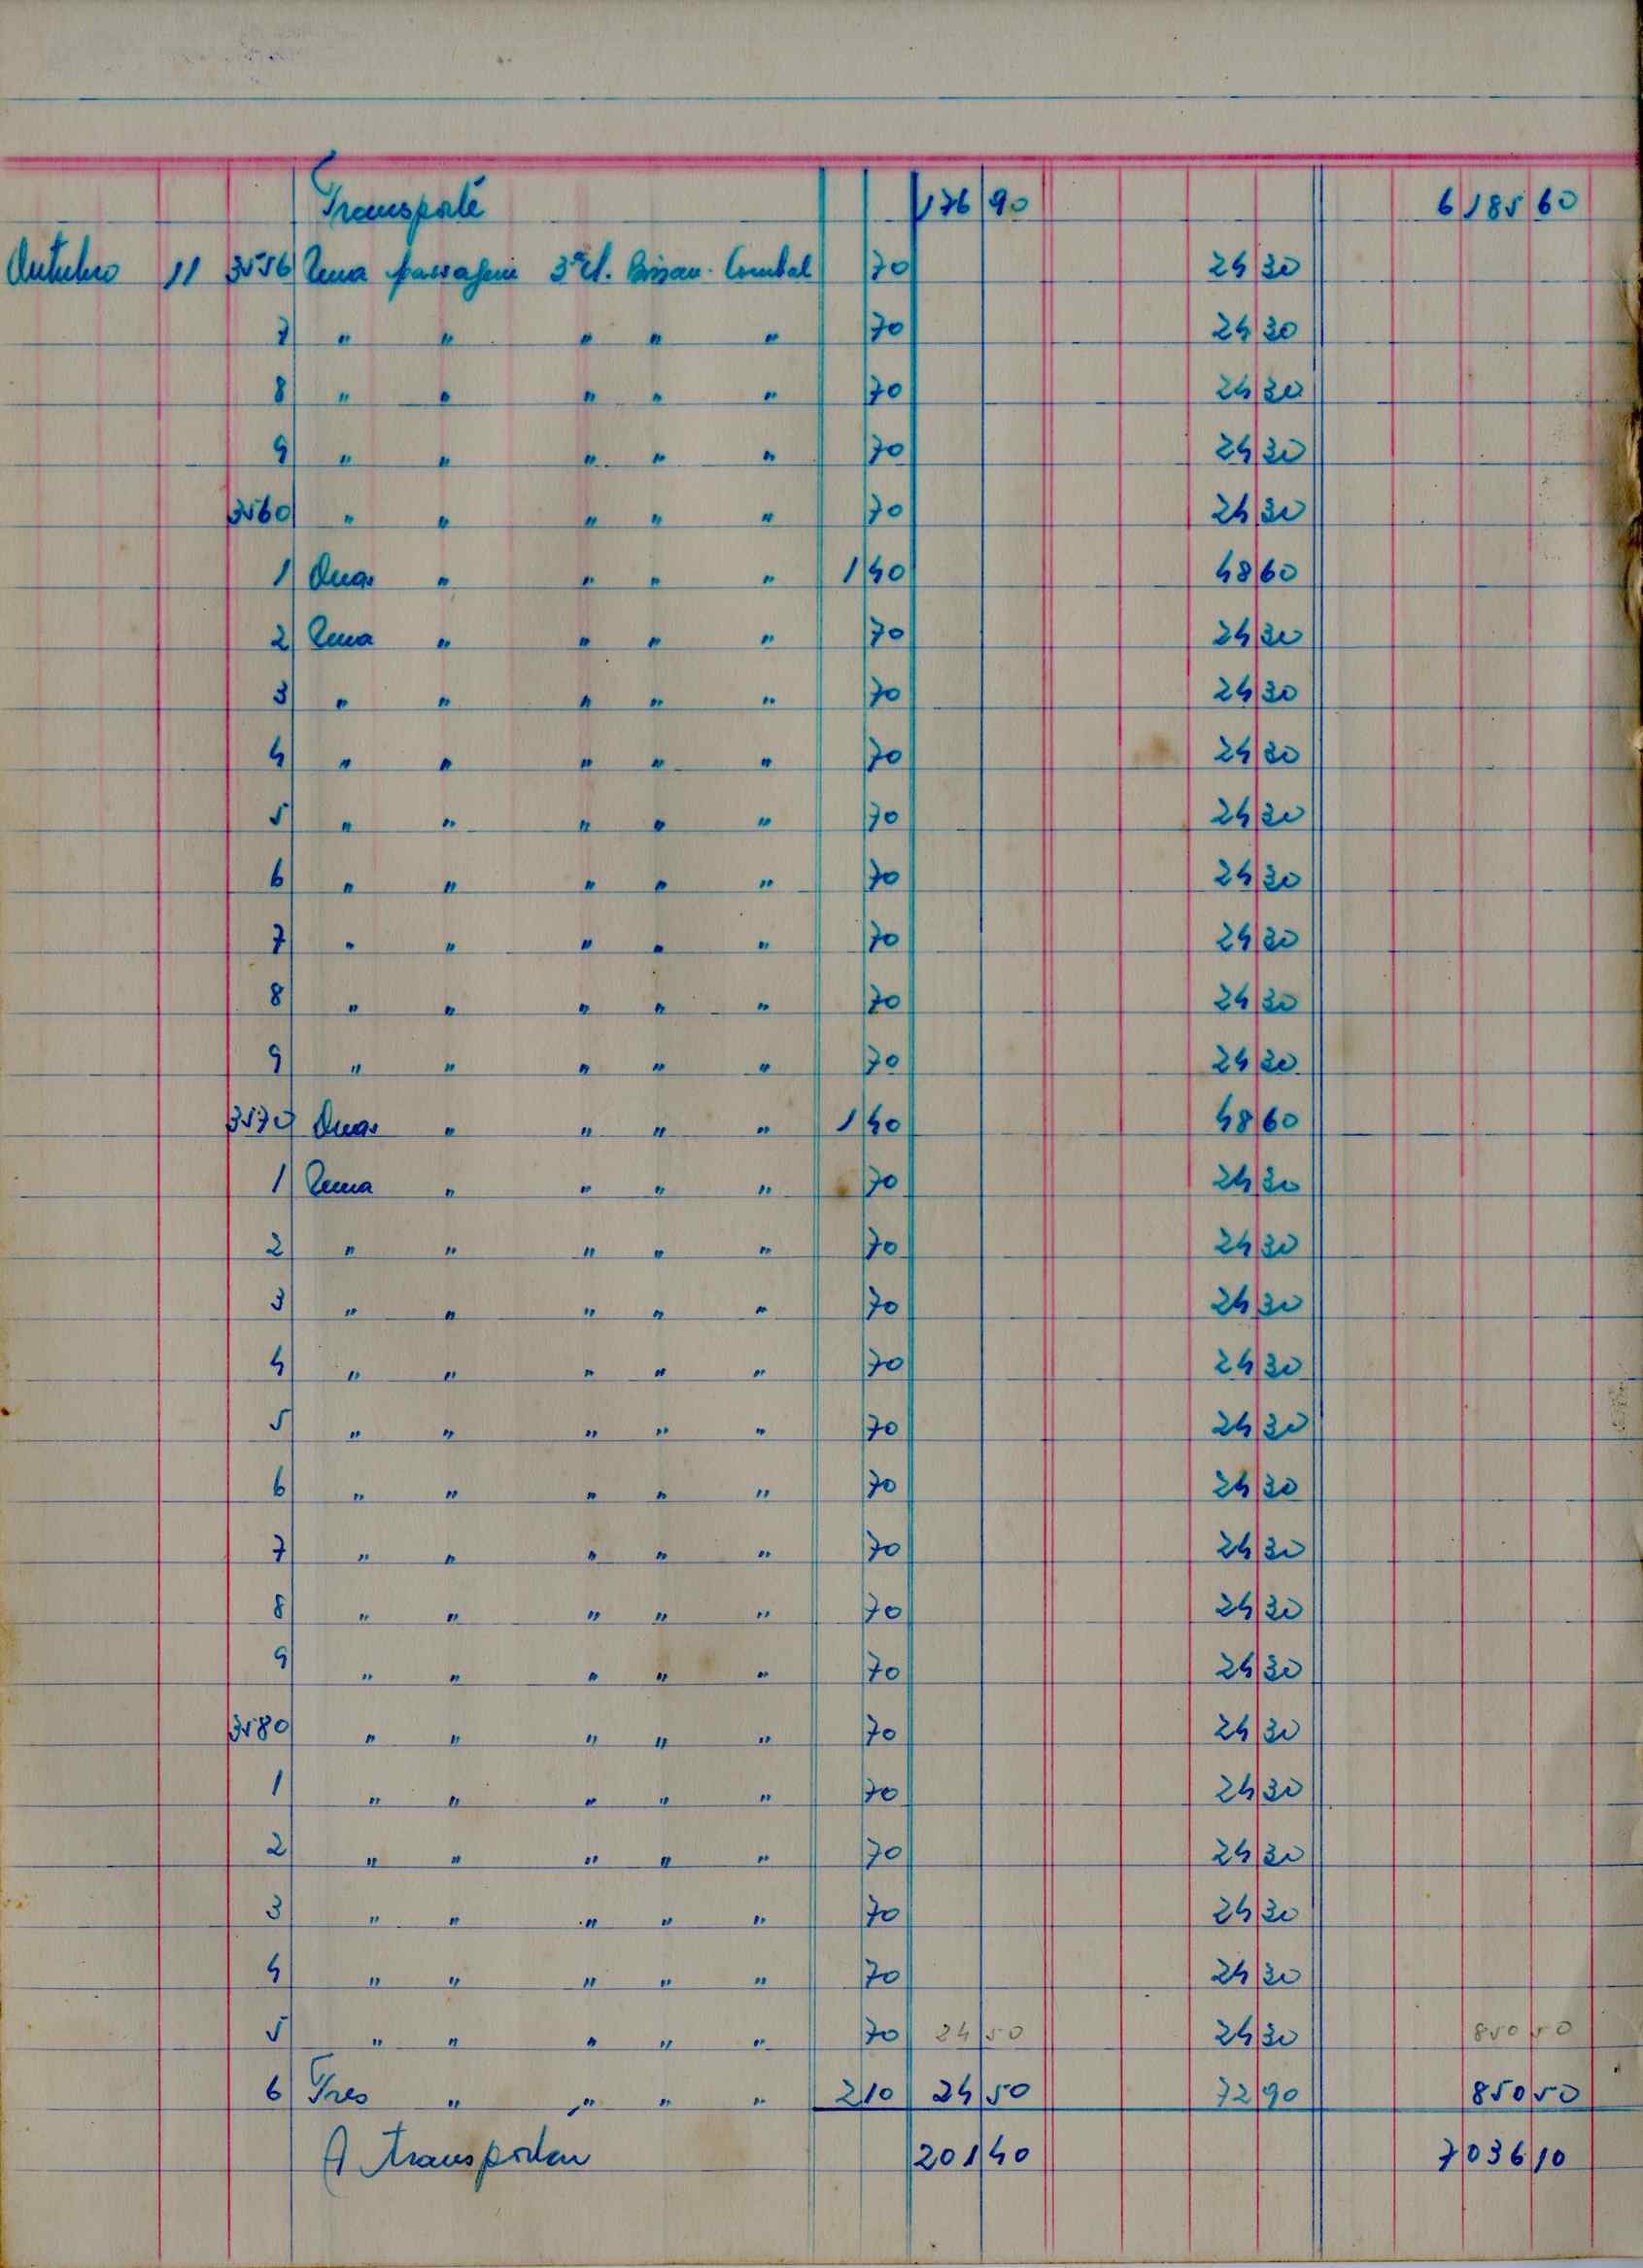 Transporte 176 90 6 185 60
Outubro 11 3556 Uma passagem 3ª cl. Bissau-Combal 70 24 30
7 " " " " " 70 24 30
8 " " " " " 70 24 30
9 " " " " " 70 24 30
3560 " " " " " 70 24 30
1 Duas " " " " 1 40 48 60
2 Uma " " " " 70 24 30
3 " " " " " 70 24 30
4 " " " " " 70 24 30
5 " " " " " 70 24 30
6 " " " " " 70 24 30
7 " " " " " 70 24 30
8 " " " " " 70 24 30
9 " " " " " 70 24 30
3570 Duas " " " " 1 40 48 60
1 Uma " " " " 70 24 30
2 " " " " " 70 24 30
3 " " " " " 70 24 30
4 " " " " " 70 24 30
5 " " " " " 70 24 30
6 " " " " " 70 24 30
7 " " " " " 70 24 30
8 " " " " " 70 24 30
9 " " " " " 70 24 30
3580 " " " " " 70 24 30
1 " " " " " 70 24 30
2 " " " " " 70 24 30
3 " " " " " 70 24 30
4 " " " " " 70 24 30
5 " " " " " 70 24 50 24 30 850 50
6 Tres " " " " 2 10 24 50 72 90 850 50
A transportar 201 40 7 036 10